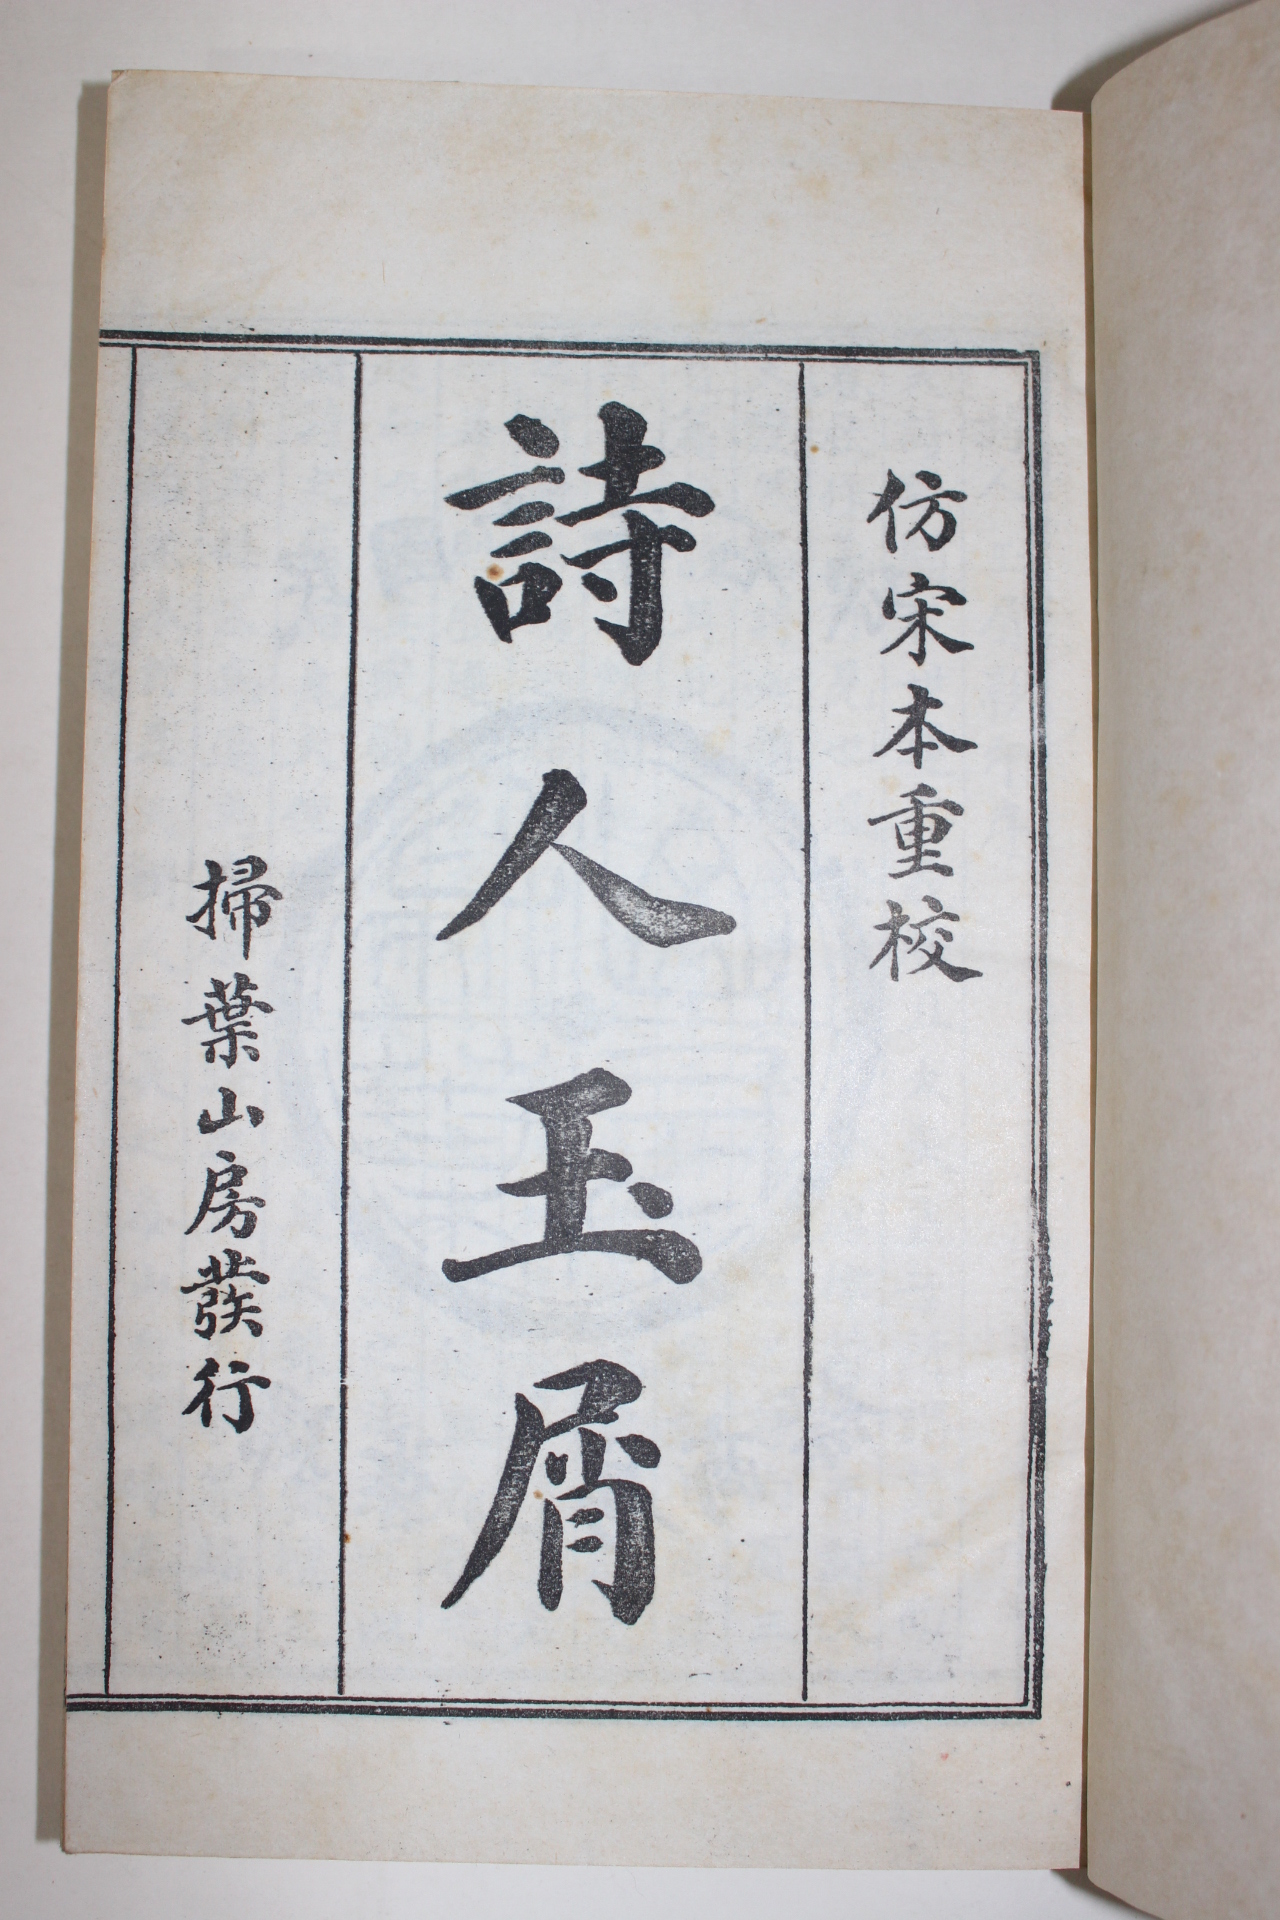 仿宋本重校
詩人玉屑
掃葉山房發行